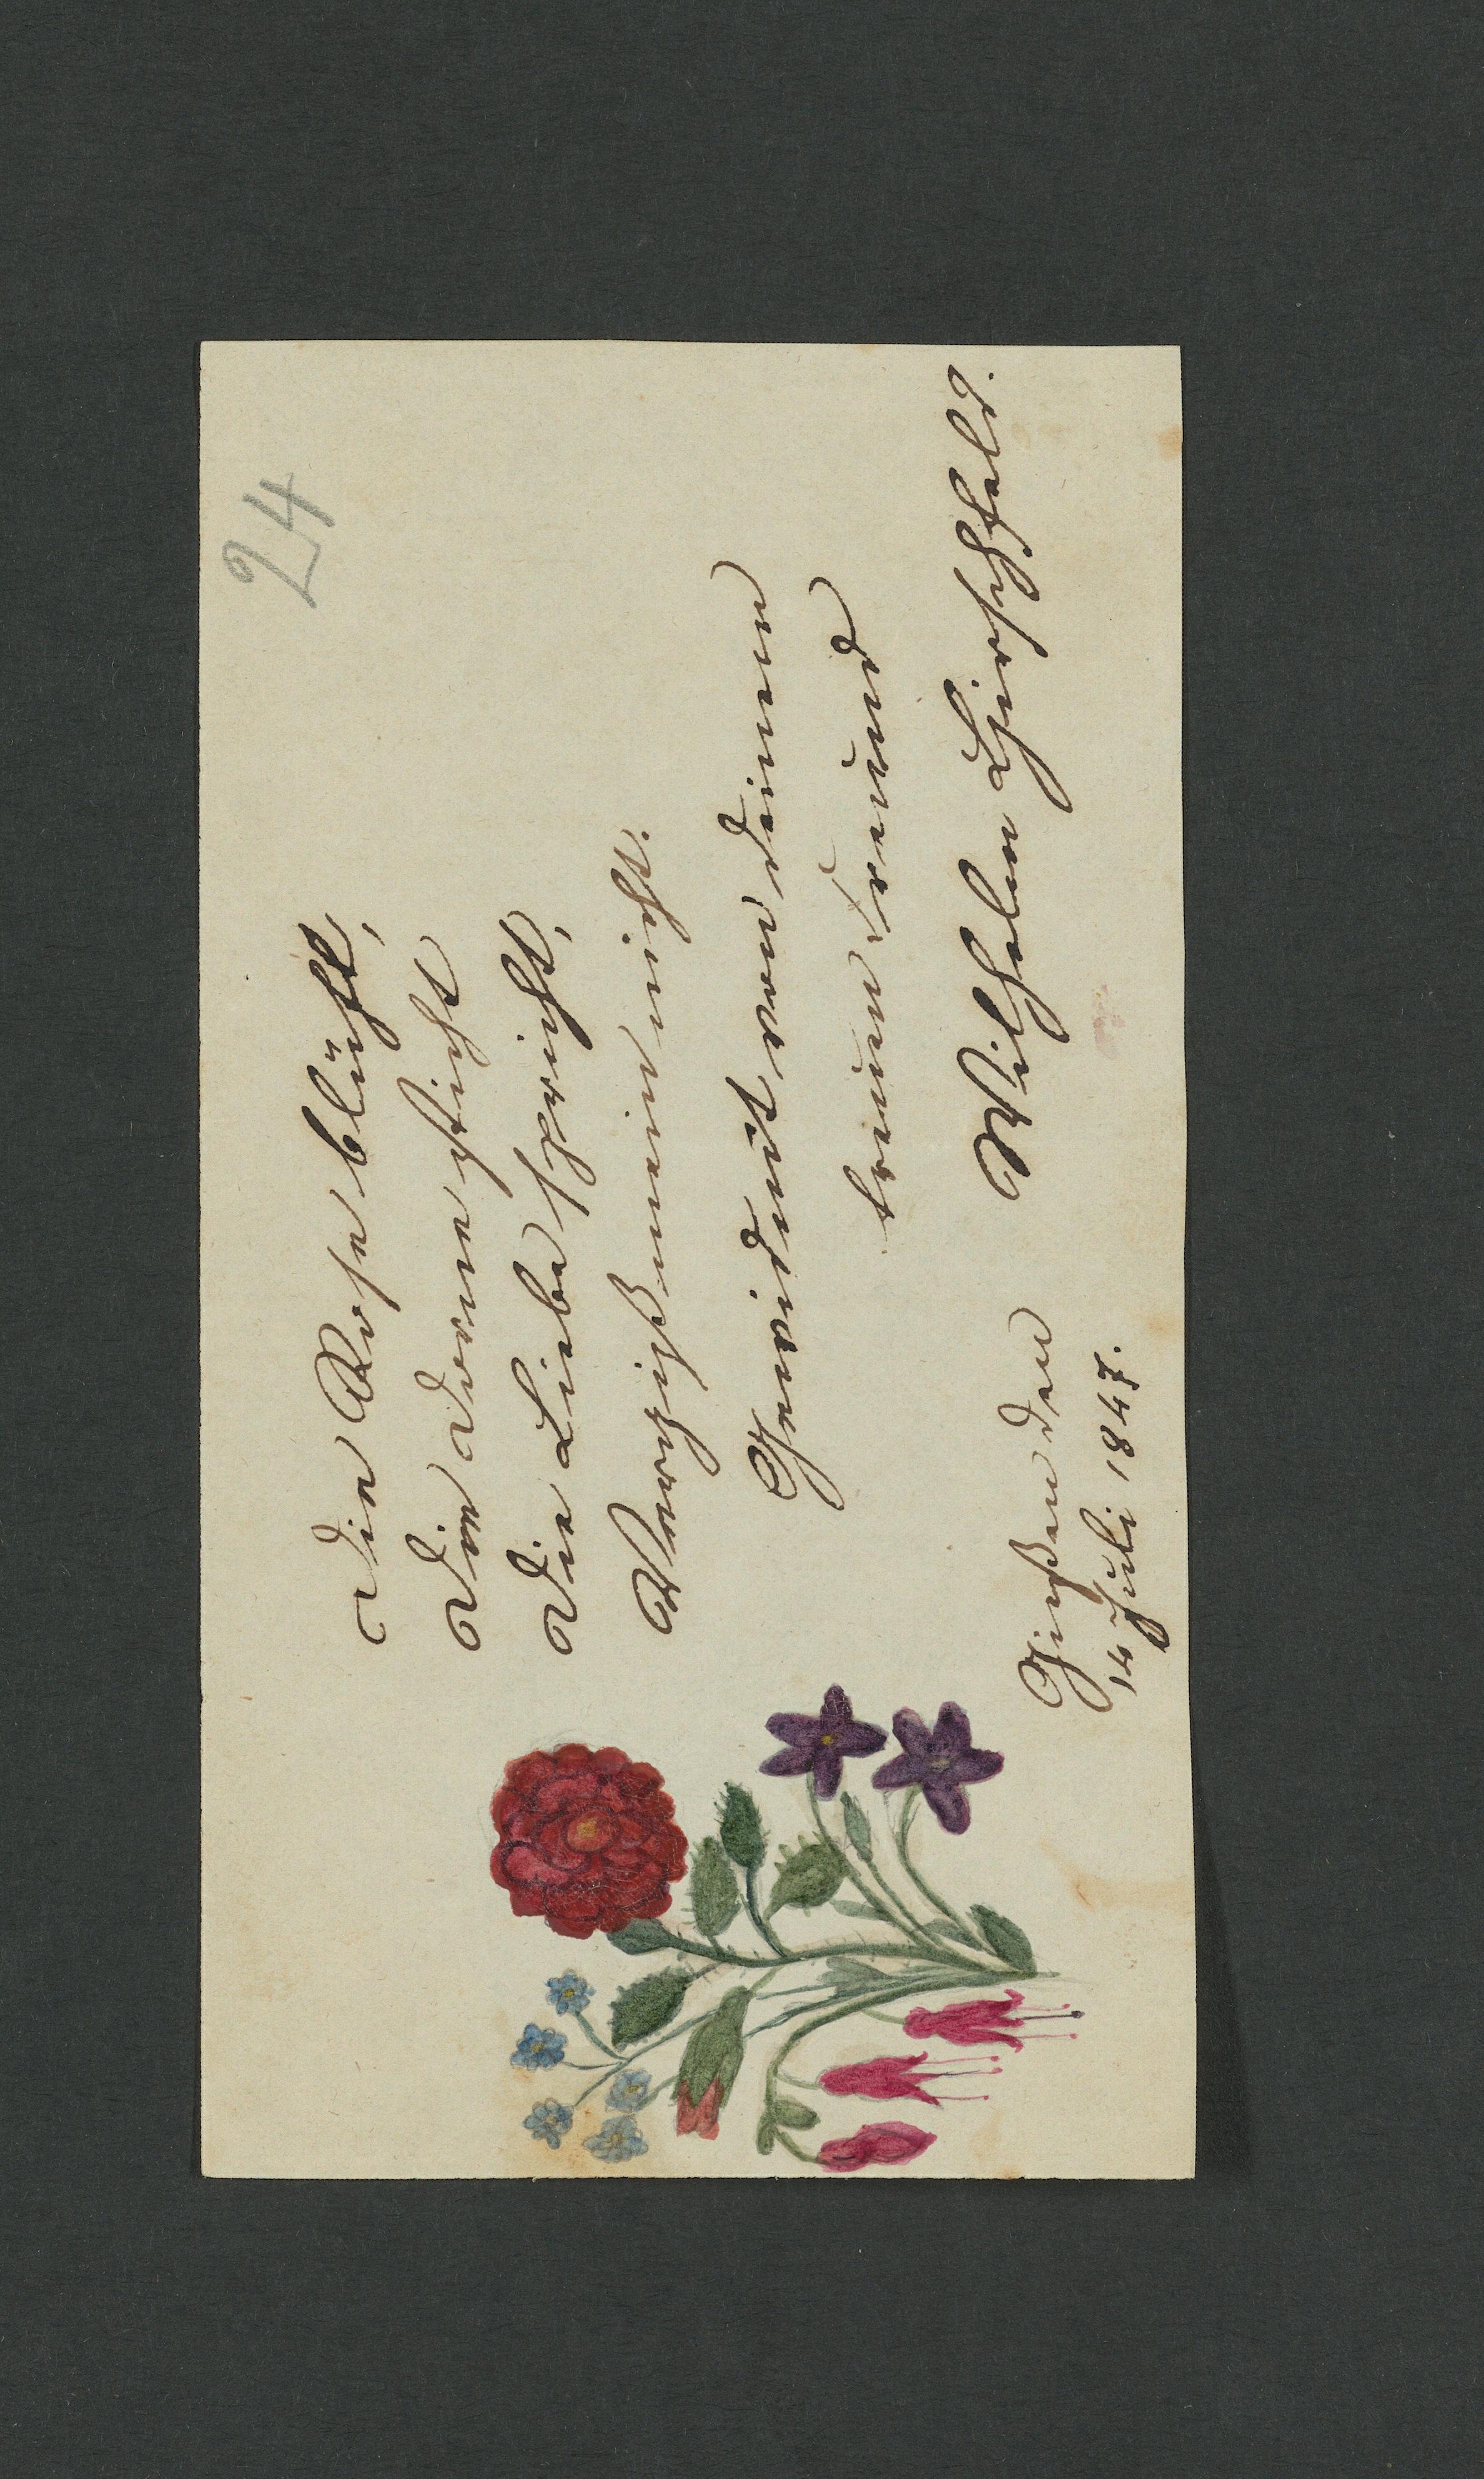 24
Die Rose blüht,
Der Dorne sticht
Die Liebe spricht,
Vergißmeinnicht.
Gewidmet von deinem
treuen Freund
Wilhelm Hirschfeld.
Gießen den
14 Juli 1847.